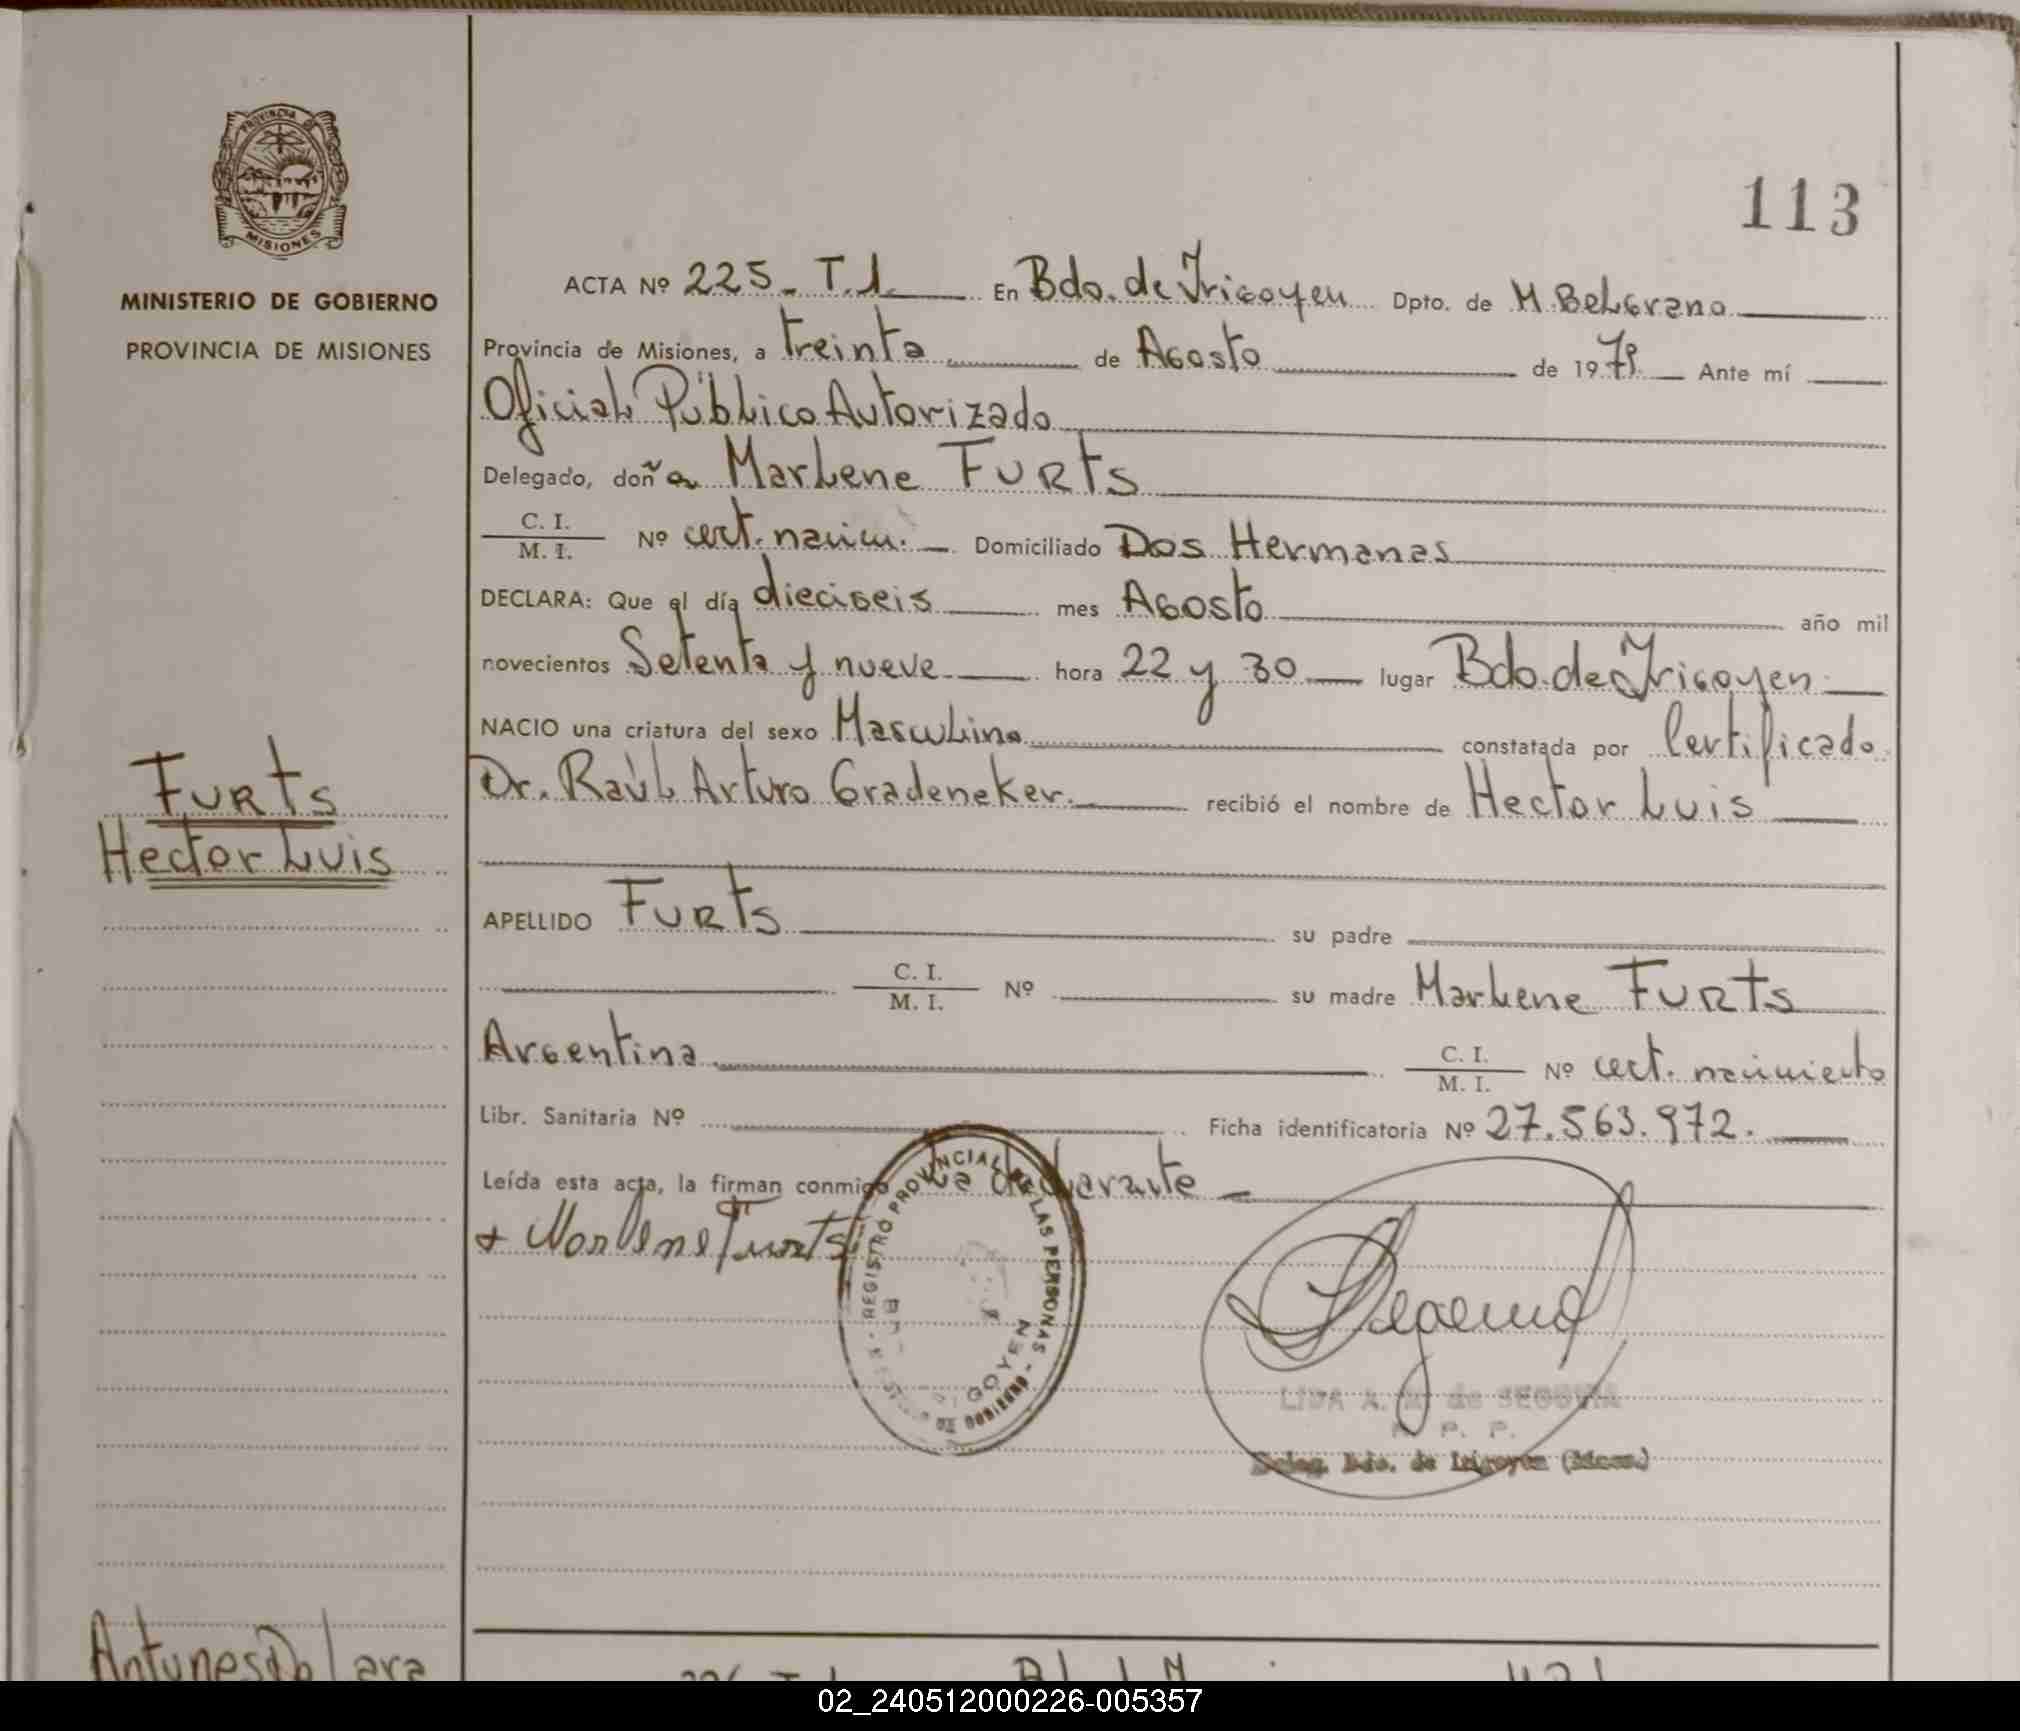 PROVINCIA DE
MISIONES
MINISTERIO DE GOBIERNO
PROVINCIA DE MISIONES
Furts
Hector Luis
113
ACTA Nº 225_ T.1. En Bdo. de Irigoyen Dpto. de M. Belgrano
Provincia de Misiones, a treinta de Agosto de 1979. Ante mí
Oficial Público Autorizado
Delegado, doña Marlene Furts
C. I.
M. I. Nº cert. nacim. Domiciliado Dos Hermanas
DECLARA: Que el día dieciseis mes Agosto año mil
novecientos Setenta y nueve hora 22 y 30 lugar Bdo. de Irigoyen
NACIO una criatura del sexo Masculino constatada por Certificado
Dr. Raúl Arturo Gradeneker. recibió el nombre de Hector Luis
APELLIDO Furts su padre
C. I.
M. I. Nº su madre Marlene Furts
Argentina C. I.
M. I. Nº cert. nacimiento
Libr. Sanitaria Nº Ficha identificatoria Nº 27.563.972.
Leída esta acta, la firman conmigo la declarante
+ Marlene Furts
REGISTRO PROVINCIAL DE LAS PERSONAS - DE GOBIERNO
LIDA A. M. de SEGOVIA
P. P.
Deleg. Bdo. de Irigoyen (Mnes.)
Antunes Do Lara
02_240512000226-005357